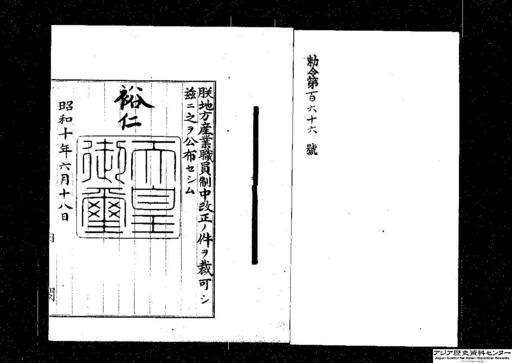 勅令第百六十六號
朕地方産業職員制中改正ノ件ヲ裁可シ
茲ニ之ヲ公布セシム
裕仁
天皇
御璽
昭和十年六月十八日
内閣
アジア歴史資料センター
Japan Center for Asian Historical Records